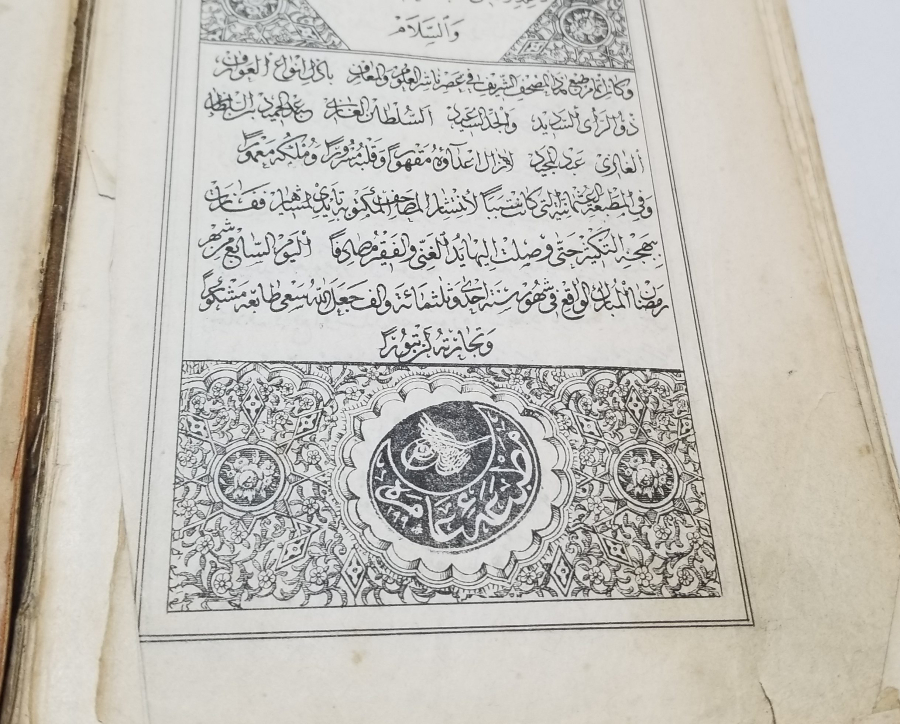 والسلام
وكان اتمام طبع هذا المصحف الشريف في عصر ناشر العلوم والمعارف باذل انواع العوارف
ذو الرأى السديد والجد السعيد السلطان الغازى عبد الحميد بن السلطان
الغازى عبد المجيد لازال اعداؤه مقهورا وقلبه مسرورا وملكه معمورا
وفى المطبعة العثمانية التى كانت سببا لأنتشار المصاحف المكتوبة بأيدى المشاهير
بهجة التكثير حتى وصلت اليها يد الغنى والفقير مصادفا اليوم السابع من شهر
رمضان المبارك الواقع في شهور سنة احدى وثلثمائة والف جعل الله سعى طابعه مشكورا
وتجارته لن تبورا
مطبعه